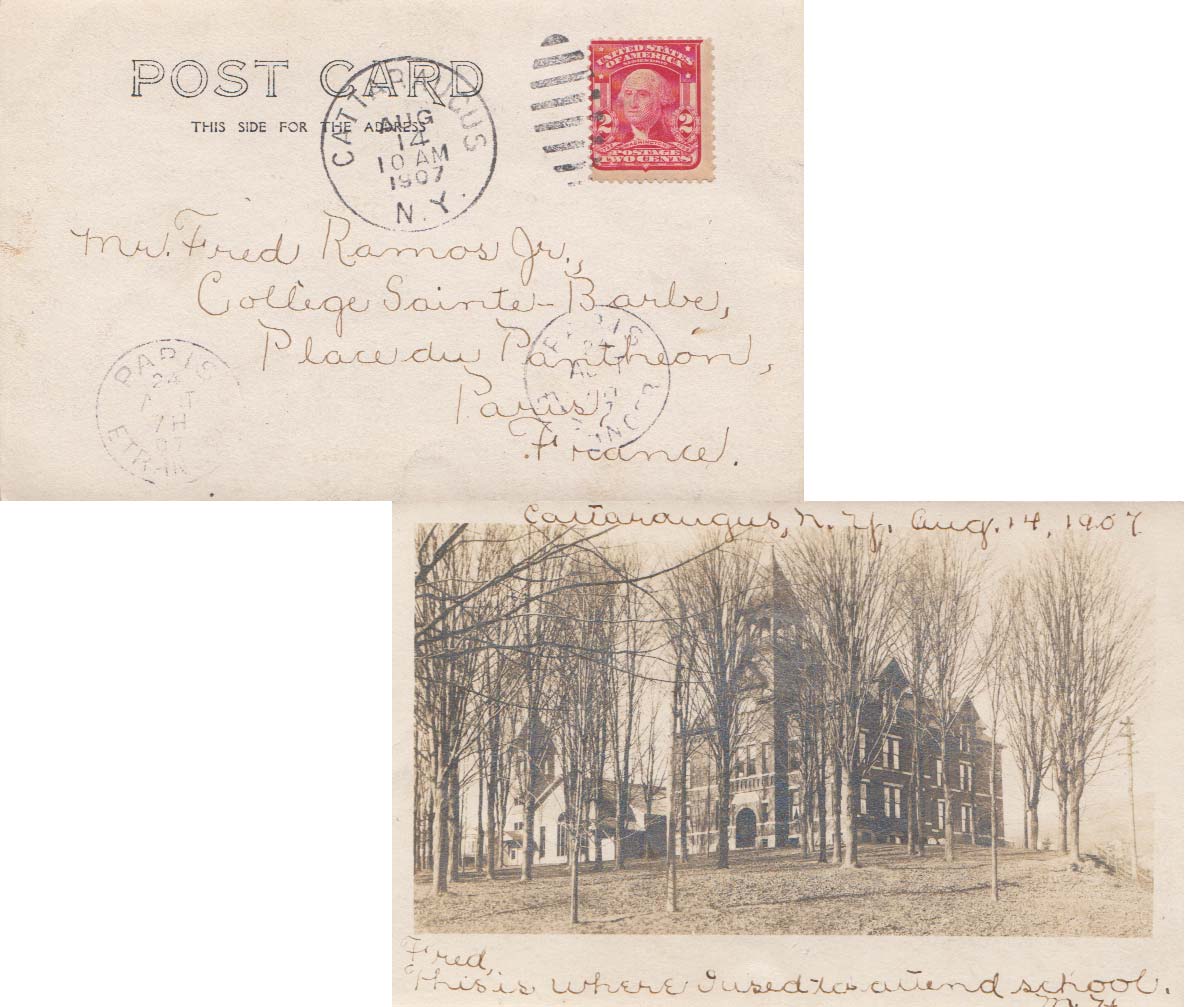 POST CARD
THIS SIDE FOR THE ADDRESS
CATTARAUGUS
AUG
14
10 AM
1907
N.Y.
UNITED STATES
OF AMERICA
2 2
WASHINGTON
POSTAGE
TWO CENTS
Mr. Fred Ramos Jr.,
College Sainte-Barbe,
Place du Pantheon,
Paris,
France.
PARIS
24
7H
07
PARIS
24
Cattaraugus, N. Y., Aug. 14, 1907
Fred,
This is where I used to attend school.
M. H.